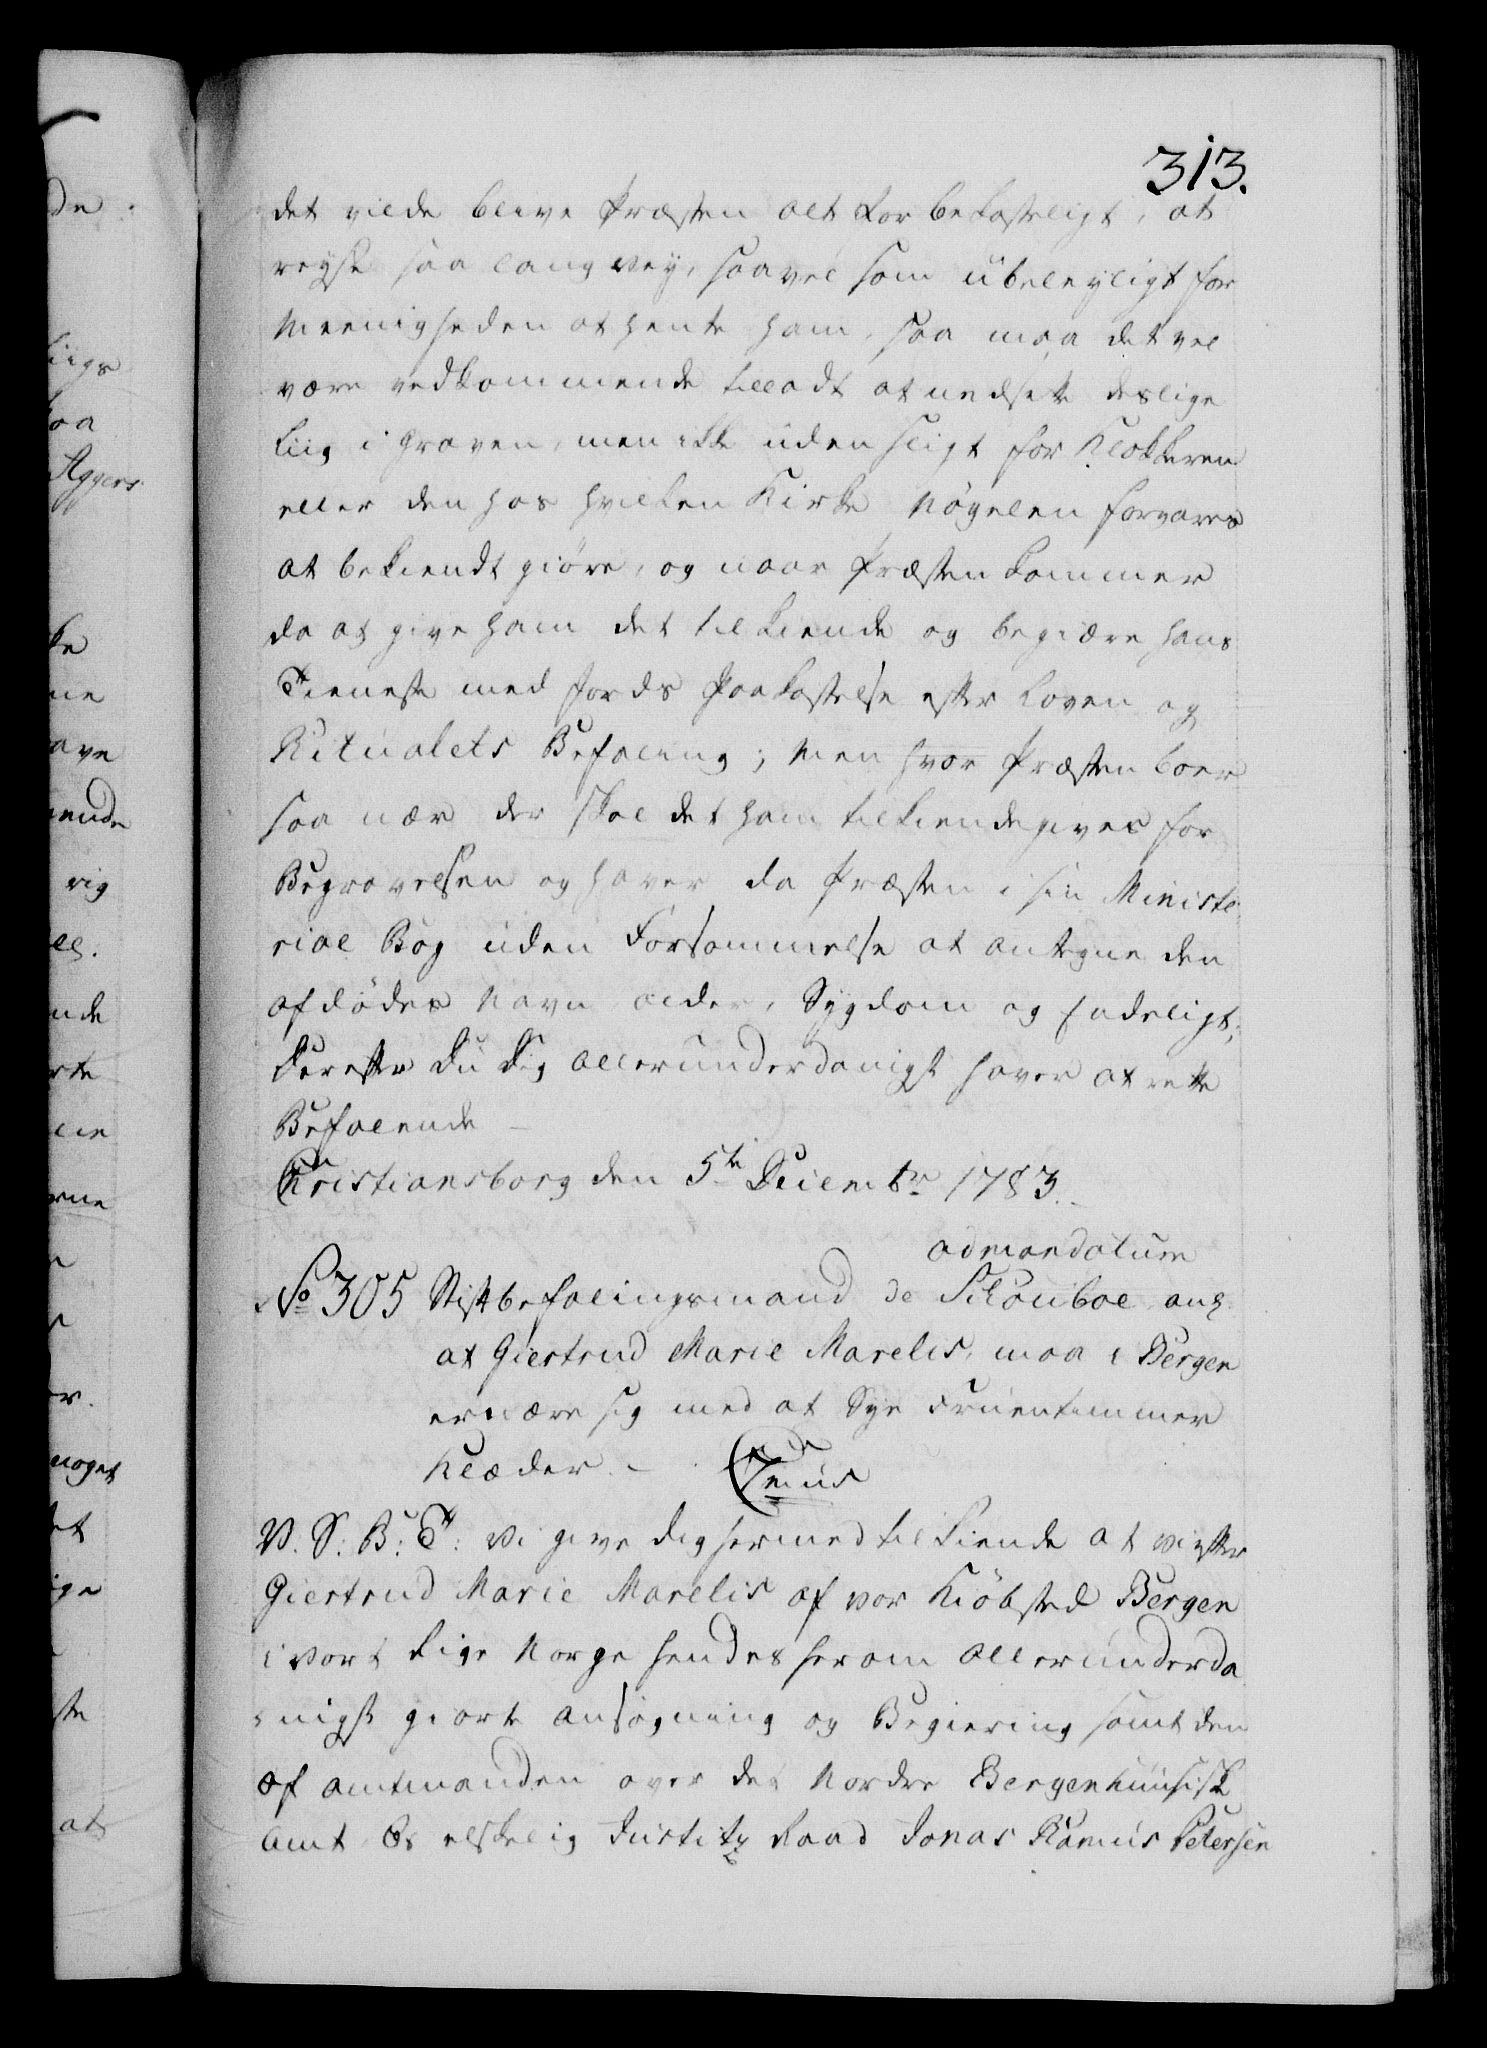 313.
det vilde blive Præsten alt for bekosteligt, at
reyse saa lang Vey, saavel som ubeleyligt for
Meenigheden at hente ham, saa maa det vel
være vedkommende tilladt at nedsætte deslige
Liig i Graven, men ikke uden sligt for Klokkeren
eller den hos hvilken Kirke Nøgelen forvares
at bekiendt giøre, og naar Præsten kommer
da at give ham det tilkiende og begiære hans
Tieneste med Jords Paakastelse efter Loven og
Ritualets Befaling; Men hvor Præsten boer
saa nær der skal det ham tilkiendegives for
Begravelsen og haver da Præsten i sin Ministe
rial Bog uden Forsømmelse at antegne den
afdødes Navn Alder, Sygdom og Endeligt;
Derefter Du Dig allerunderdanigst haver at rette
Befalende
Christiansborg den 5te Decembr 1783.
ad mandatum
No 305 Stiftbefalingsmand de Schouboe ang
at Giertrud Marie Marelis, maa i Bergen
ernære sig med at Sye Fruentimmer
Klæder.
V. S. B: T: Vi give dig hermed tilkiende at vi efter
Giertrud Marie Marelis af vor Kiøbsted Bergen
i vort Rige Norge hendes herom allerunderda
nigst giorte Ansøgning og Begiering samt den
af Amtmanden over det Nordre Bergenhuusiske
Amt Os elskelig Justitz Raad Jonas Ramus Petersen